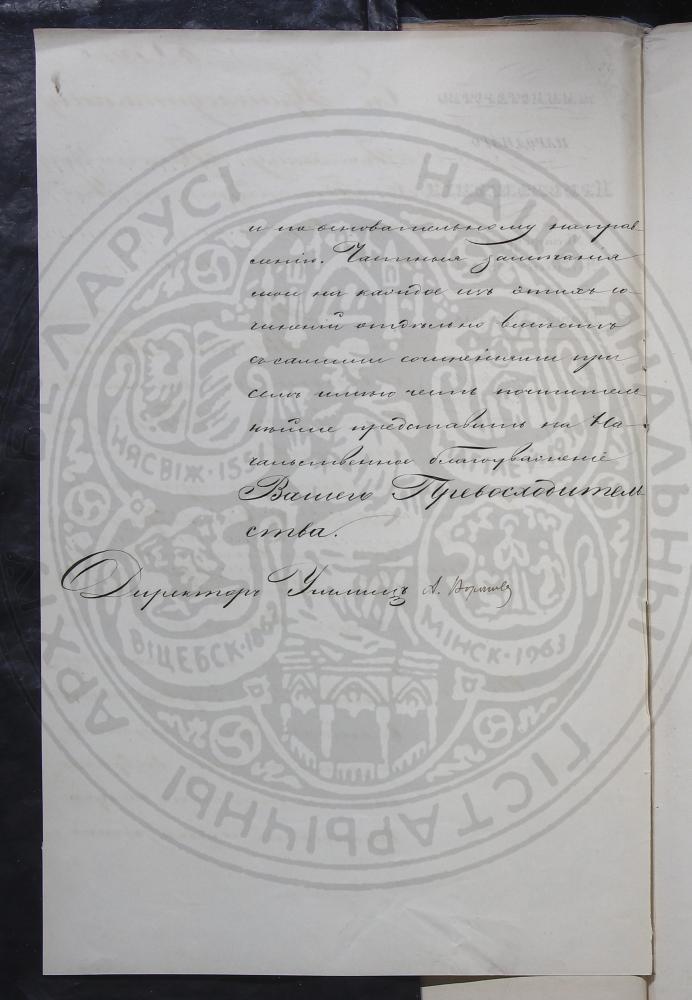 и по основательному исправ-
ленію. Частныя замѣчанія
мои на каждое изъ этихъ со-
чиненій отдѣльно вмѣстѣ
съ самыми сочиненіями при
семъ имѣю честь почтитель
нѣйше представить на На-
чальственное благоуваженіе
Вашего Превосходитель
ства.
Директоръ Училищъ А.
НАЦЫЯНАЛЬНЫ ГІСТАРЫЧНЫ АРХІЎ БЕЛАРУСІ
НЯСВІЖ
ВІЦЕБСК
МІНСК·1963